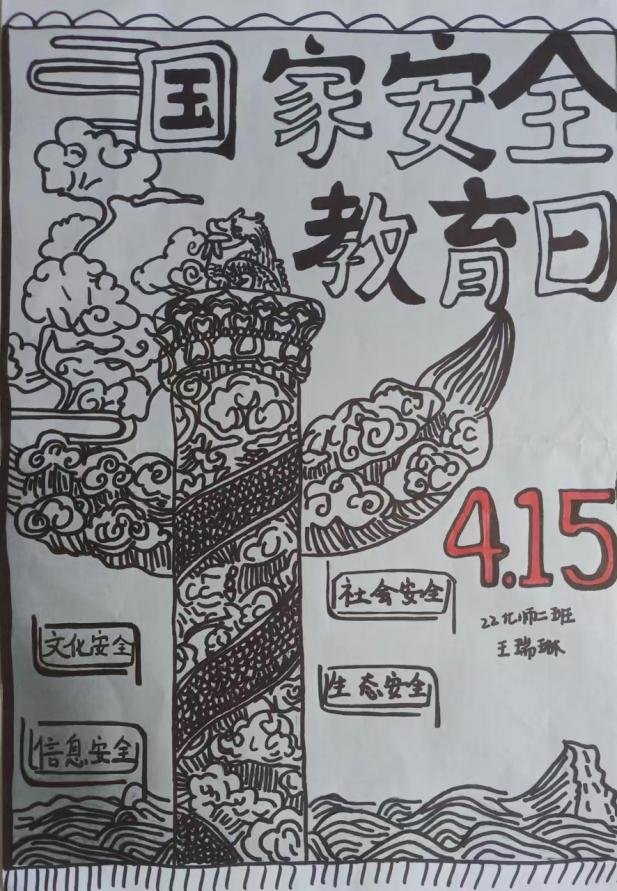 国家安全
教育日
4.15
社会安全
文化安全
生态安全
信息安全
二班
王瑞琳